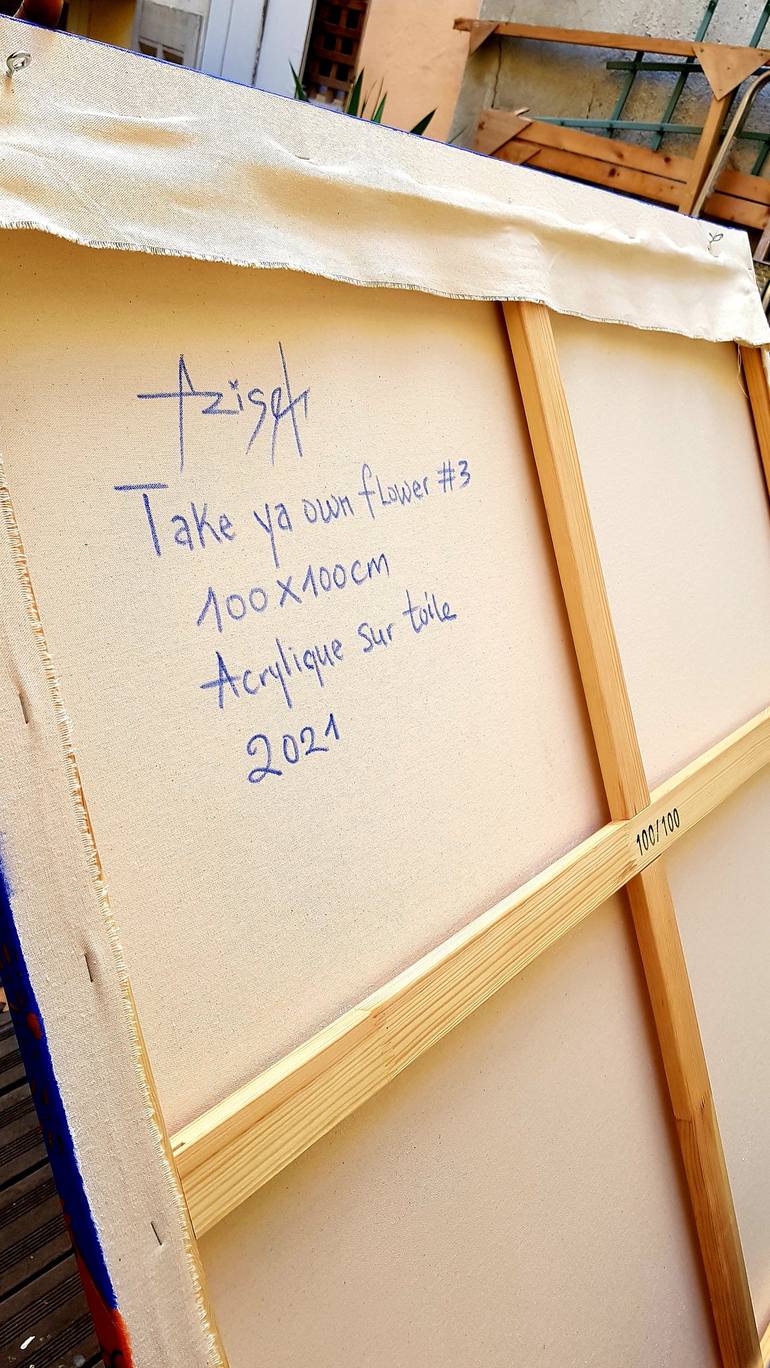 Take ya own flower #3
100x100cm
Acrylique sur toile
2021
100/100